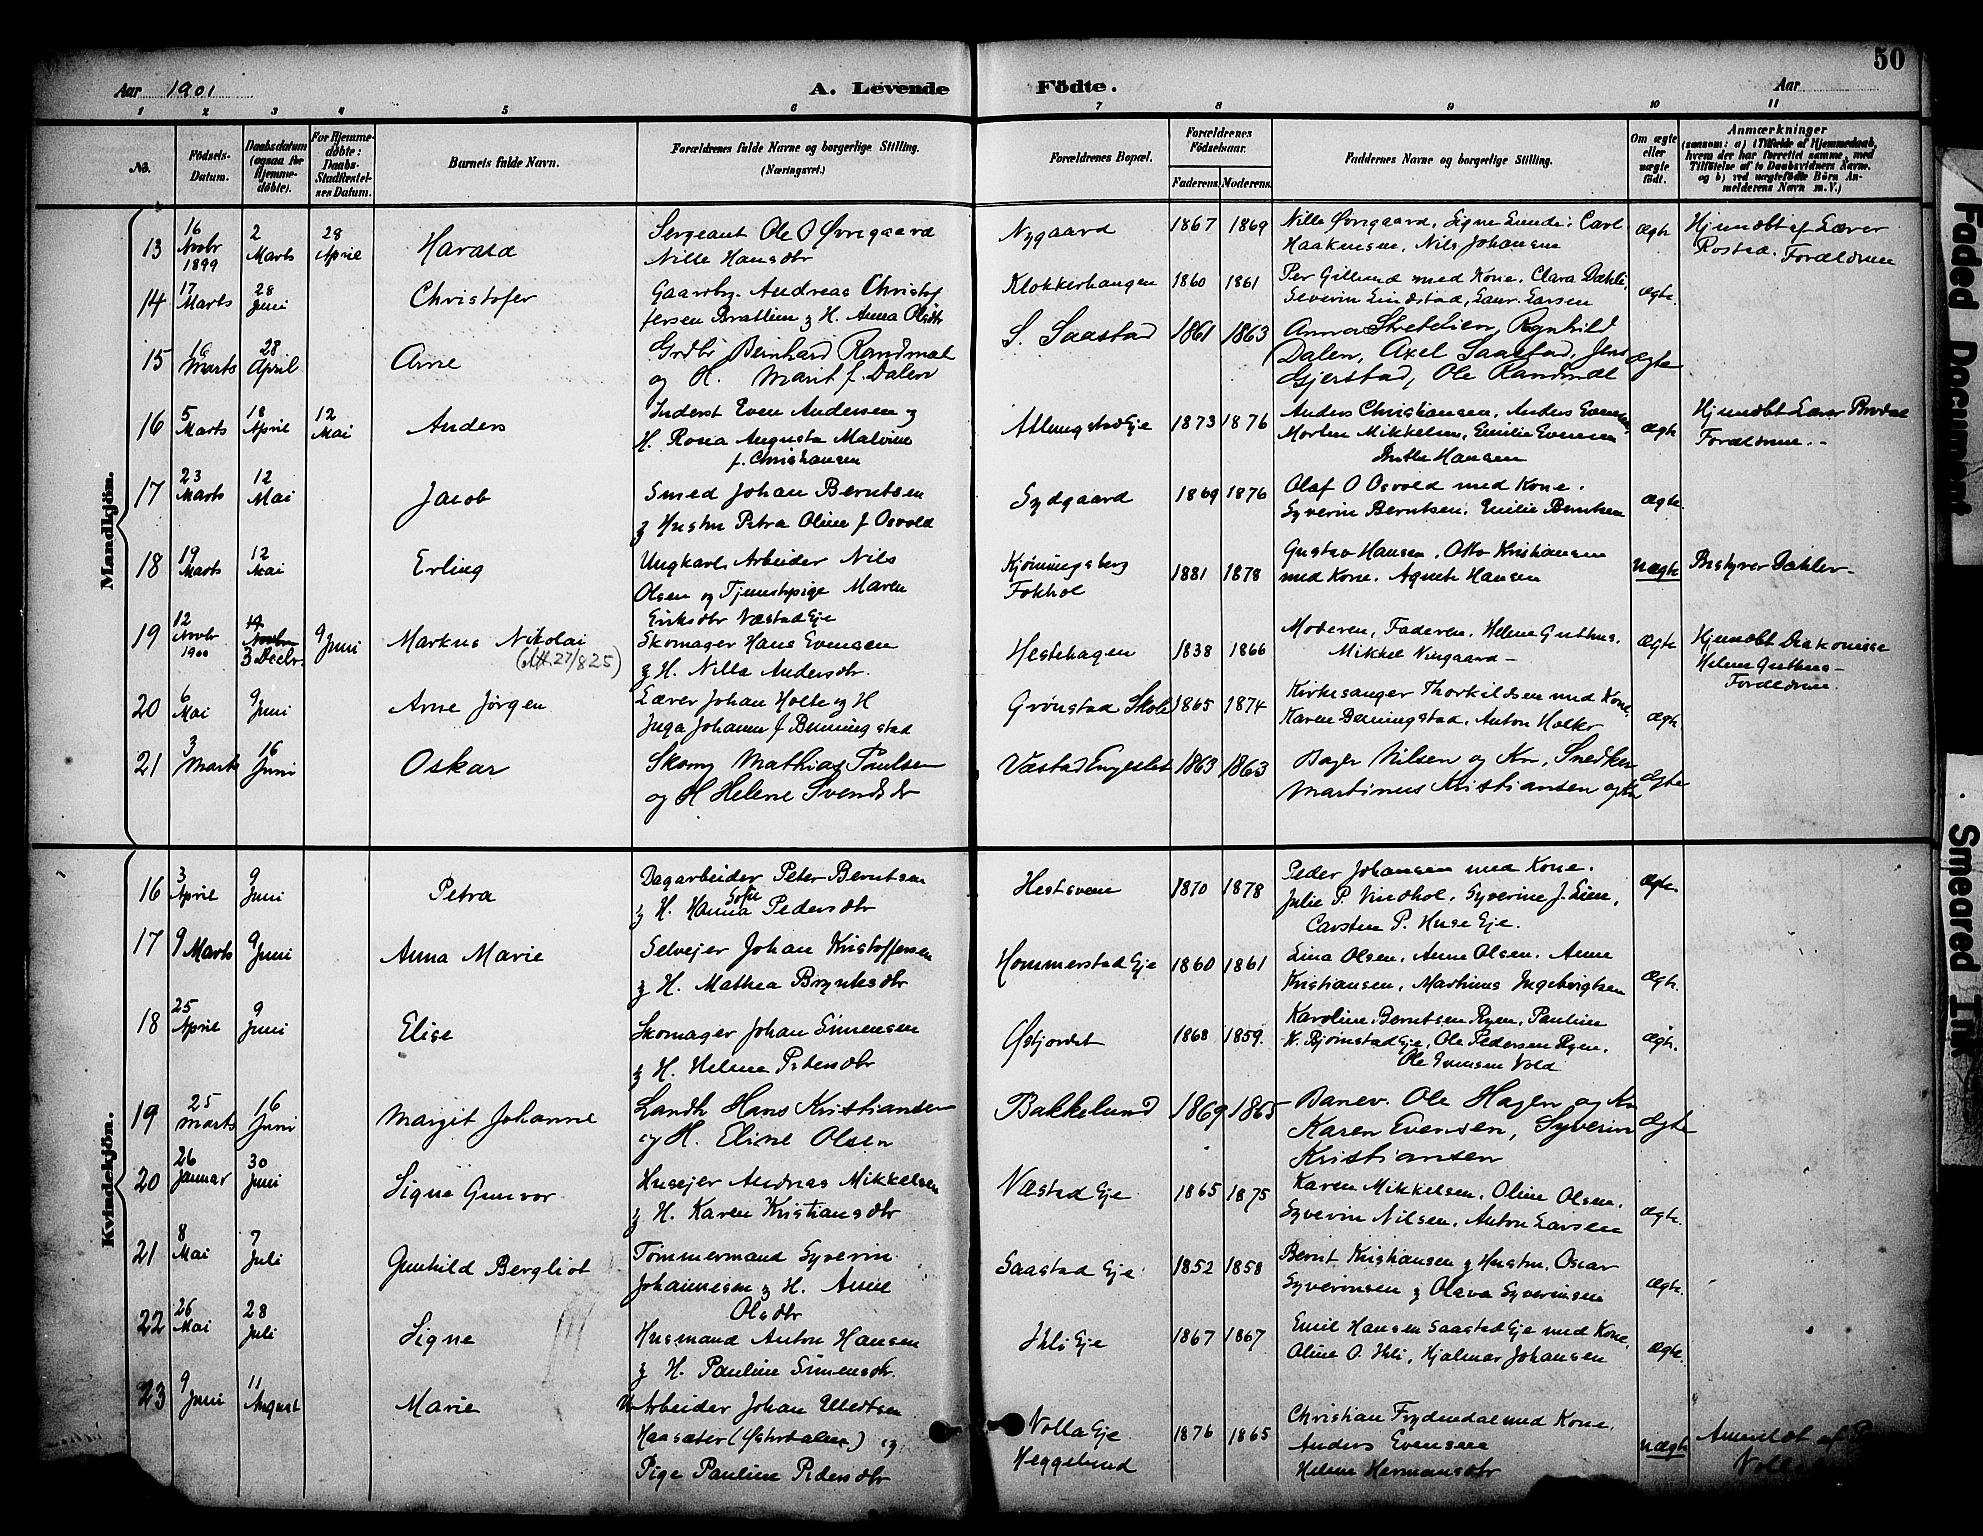 50
Aar 1901 A. Levende Födte. Aar
1 2 3 4 5 6 7 8 9 10 11
No. Födsels-Datum. Daabsdatum (ogsaa for Hjemmedöbte). For Hjemmedöbte: Daabs-Stadfæstelses Datum. Barnets fulde Navn. Forældrenes fulde Navne og borgerlige Stilling. (Næringsvei.) Forældrenes Bopæl. Forældrenes Födselsaar. Faderens. Moderens. Faddernes Navne og borgerlige Stilling. Om ægte eller uægte födt. Anmærkninger (saasom: a) i Tilfælde af Hjemmedaab, hvem der har forrettet samme, med Tilföielse af to Daabsvidners Navne. og b) ved uægtefödte Börn Anmelderens Navn m. V.)
Mandkjön.
13 16 Novbr 1899 2 Marts 28 April Harald Sergeant Ole O Øvregaard
Nille Hansdtr Nygaard 1867 1869 Nille Øvregaard, Signe Lunde, Carl
Haakensen, Nils Johansen ægte Hjemdøbt af Lærer
Rostad. Forældrene
14 17 Marts 28 Juni Christofer Gaardbr. Andreas Christof
fersen Brattlien & H. Anna Olsdtr Klokkerhaugen 1860 1861 Per Gillund med Kone. Clara Dæhli,
Severin Lindstad, Laur. Larsen ægte.
15 Marts 28 April Arne Grdbr Bernhard Randmæl
og H. Marit f. Dalen S. Saastad 1861 1863 Anna Stretelien, Ragnhild
Dalen, Axel Saastad, Jens
Gjerstad, Ole Randmæl ægte
16 5 Marts 18 April 12 Mai Anders Inderst Even Andersen og
H. Rosia Augusta Malvine
f. Christiansen Atlungstad Eje 1873 1876 Anders Christiansen, Anders Evensen
Morten Mikkelsen, Emilie Evensen
Hansen ægte Hjemdøbt Lærer
Forældrene. -
17 23 Marts 12 Mai Jacob Smed Johan Berntsen
& Hustru Petra Oline f. Osvold Sydgaard 1869 1876 Olaf O Osvold med Kone.
Syverin Berntsen. Emilie Berntsen ægte.
18 19 Marts 12 Mai Erling Ungkarl. Arbeider Nils
Olsen og Tjenestepige Maren
Eriksdtr Væstad Eje Kjønningsberg
Fokhol 1881 1878 Gustav Hansen, Otto Kristiansen
med Kone. Agnete Hansen uægte Bestyrer Dæhler -
19 12 Novbr 1900 19 Novbr 3 Decbr. 9 Juni Markus Nikolai
(27/825) Skomager Hans Evensen
& H. Nilla Andersdtr. Hestehagen 1838 1866 Moderen, Faderen. Helene Guthus.
Mikkel Vingaard - ægte Hjemdøbt Diakonisse
Helene Guthus -
Forældrene.
20 6 Mai 9 Juni Arne Jørgen Lærer Johan Holte og H
Inga Johanne f. Benningstad Grønstad Skole 1865 1874 Kirkesanger Thorkildsen med Kone.
Karen Benningstad, Anton Holte ægte
21 3 Marts 16 Juni Oskar Skomg Mathias Paulsen
og H Helene Svendsdr Væstad Engeslet 1863 1863 Bager Nilsen og Kn, Snedker
Martinus Kristiansen og Kn ægte
Kvindekjön.
16 3 April 9 Juni Petra Dagarbeider Peter Berntsen
& H. Hanna Sofie Pedersdtr Hestsveen 1870 1878 Peder Johansen med Kone.
Julie P. Vindhol. Syverine J. Lien,
Carsten P. Huse Eje. ægte.
17 9 Marts 9 Juni Anna Marie Selvejer Johan Kristoffersen
& H. Mathea Bryntesdtr Hommerstad Eje 1860 1861 Lina Olsen. Anne Olsen. Anne
Kristiansen, Martinus Ingebrigtsen ægte.
18 25 April 9 Juni Elise Skomager Johan Simensen
& H. Helene Pedersdtr Østjordet 1868 1859. Karoline Berntsen Ryen. Pauline
K. Bjørnstad Eje, Ole Pedersen Ryen.
Ole Evensen Vold ægte.
19 25 Marts 16 Juni Margit Johanne Landh Hans Kristiansen
og H. Eline Olsen Bakkelund 1869 1865 Banev. Ole Hagen og Kn
Karen Evensen, Syverin
Kristiansen ægte
20 26 Januar 30 Juni Signe Gunvor Husejer Andreas Mikkelsen
& H. Karen Kristiansdtr Væstad Eje 1865 1875 Karen Mikkelsen, Oline Olsen.
Syverin Nilsen, Anton Larsen ægte.
21 8 Mai 7 Juli Gunhild Bergliot Tømmermand Syverin
Johannesen & H. Anne
Olsdtr Saastad Eje 1852 1858 Bernt Kristiansen & Hustru. Oscar
Syverinsen & Olava Syverinsen ægte.
22 26 Mai 28 Juli Signe Husmand Anton Hansen
& H. Pauline Simensdtr. Ihli Eje 1867 1867 Emil Hansen Saastad Eje med Kone.
Oline O. Ihli, Hjalmar Johansen ægte.
23 9 Juni 11 August Marie Arbeider Johan
Haasæter (Østerdalen) og
Pige Pauline Pedersdtr Volla Eje
Heggelund 1876 1865 Christian Frydendal med Kone.
Anders Evensen
Helene Hermansdtr uægte Anmeldt af
Faded Document . Smeared Ink